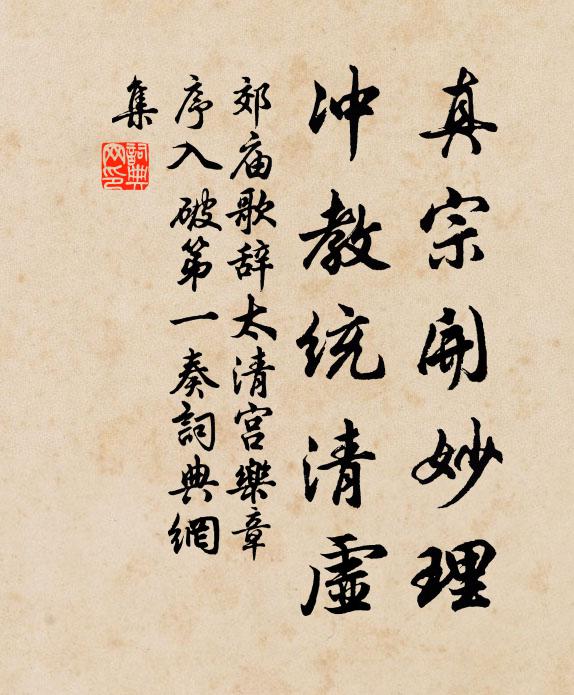 真宗開妙理
冲教統清虛
郊庙歌辞太清宫樂章
序入破第一奏詞典網
集
詞典
网印